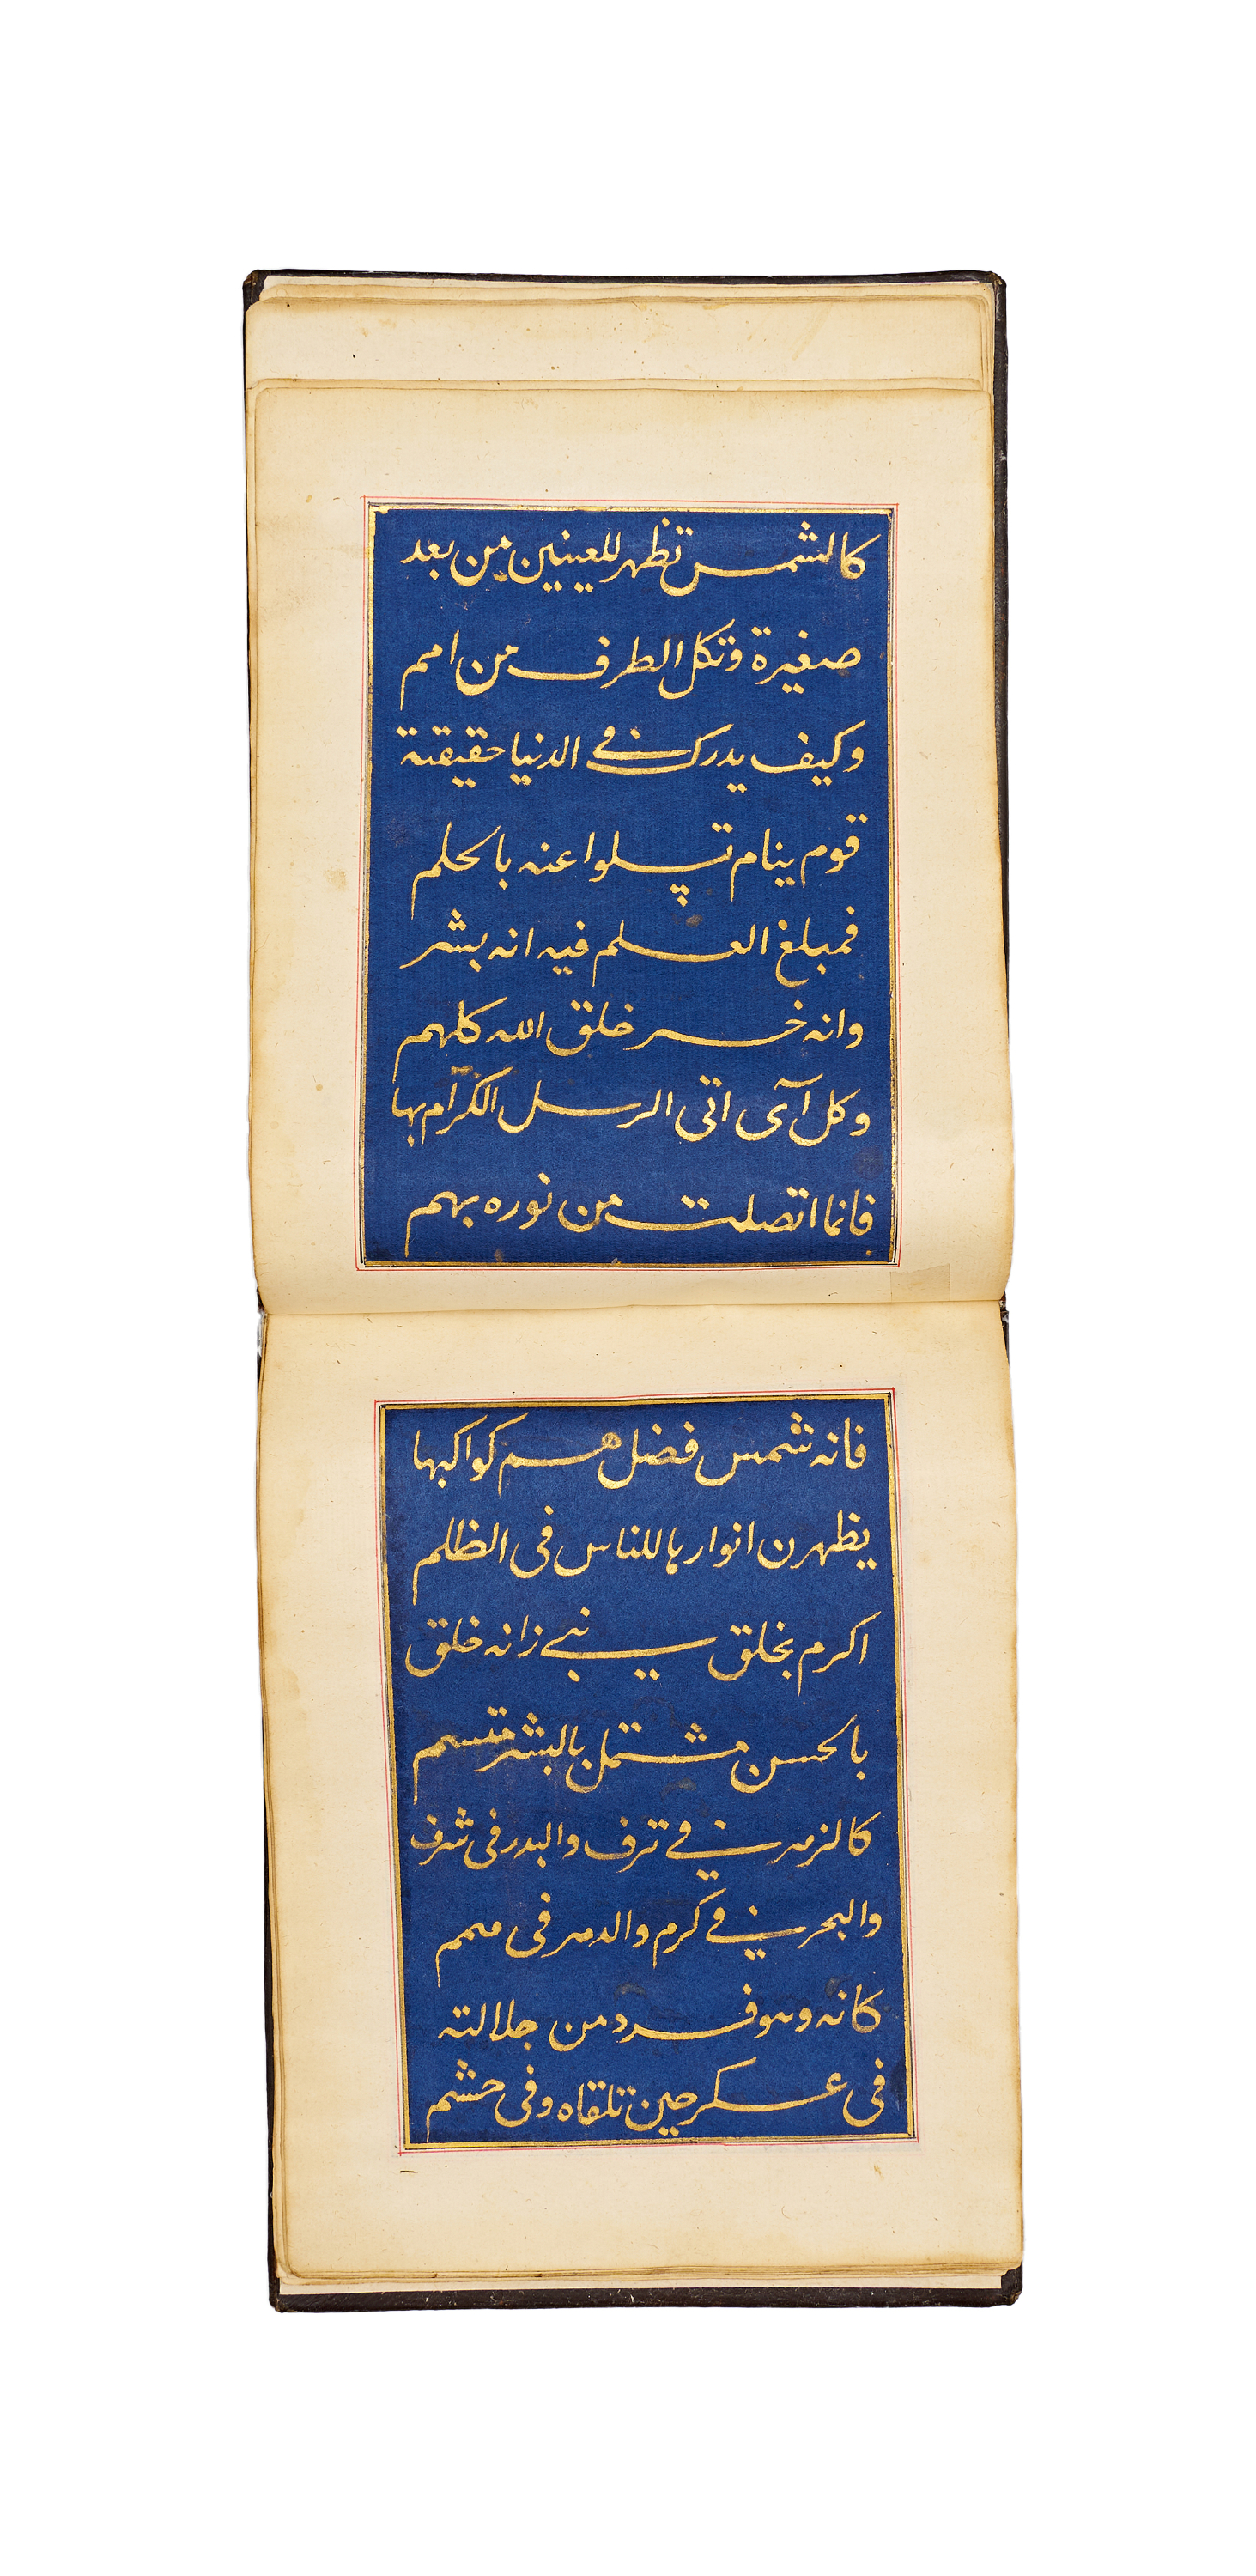 كالشمس تظهر للعينين من بعد
صغيرة وتكل الطرف من امم
وكيف يدرك في الدنيا حقيقتة
قوم ينام تسلوا عنه بالحلم
فمبلغ العلم فيه انه بشر
وانه خير خلق الله كلهم
وكل آى اتى الرسل الكرام بها
فانما اتصلت من نوره بهم
فانه شمس فضل هم كواكبها
يظهرن انوارها للناس فى الظلم
اكرم بخلق نبي زانه خلق
بالحسن مشتمل بالبشر متسم
كالزهر في ترف والبدر فى شرف
والبحر في كرم والدهر فى همم
كانه وهو فرد من جلالته
فى عسكر حين تلقاه وفى حشم